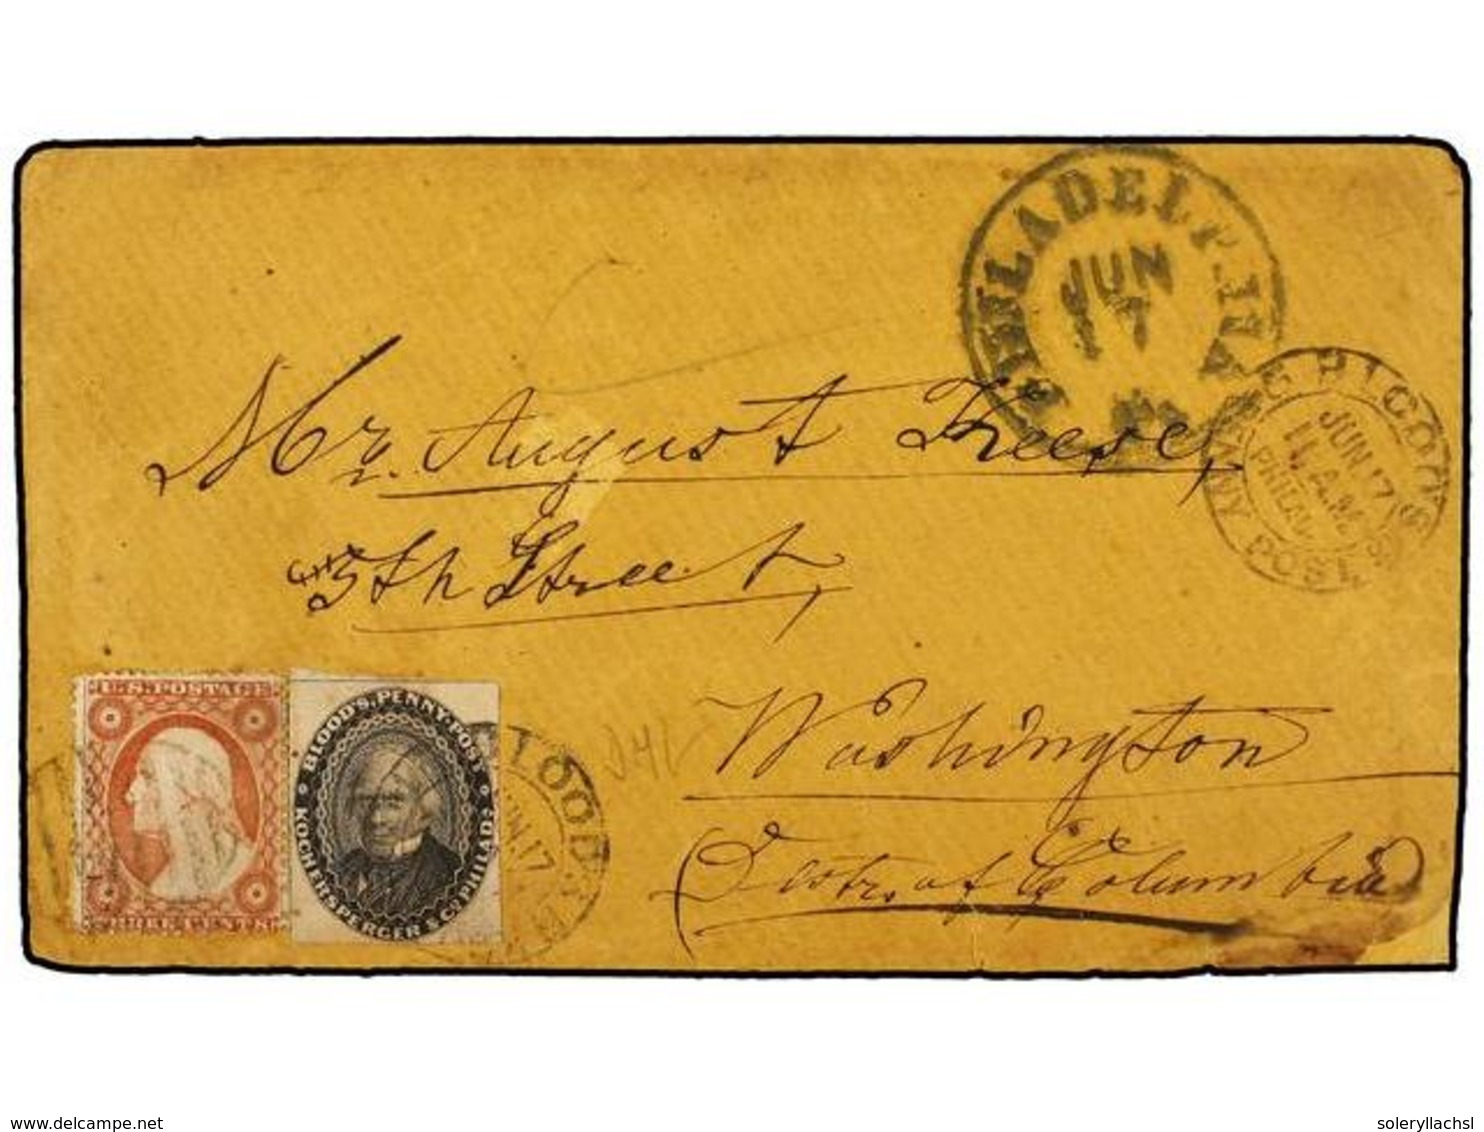 PHILADELPHIA
JUN
17
Mr. August Freese,
BLOODS PENNY POST
JUN 17
11 A.M
PHILADA
5th Street,
U.S. POSTAGE
BLOOD'S PENNY POST
KOCHERSPERGER & CO. PHILADA
THREE CENTS
BLOODS
JUN 17
Washington
(Distr. of Columbia)
www.delcampe.net
soleryllachsl